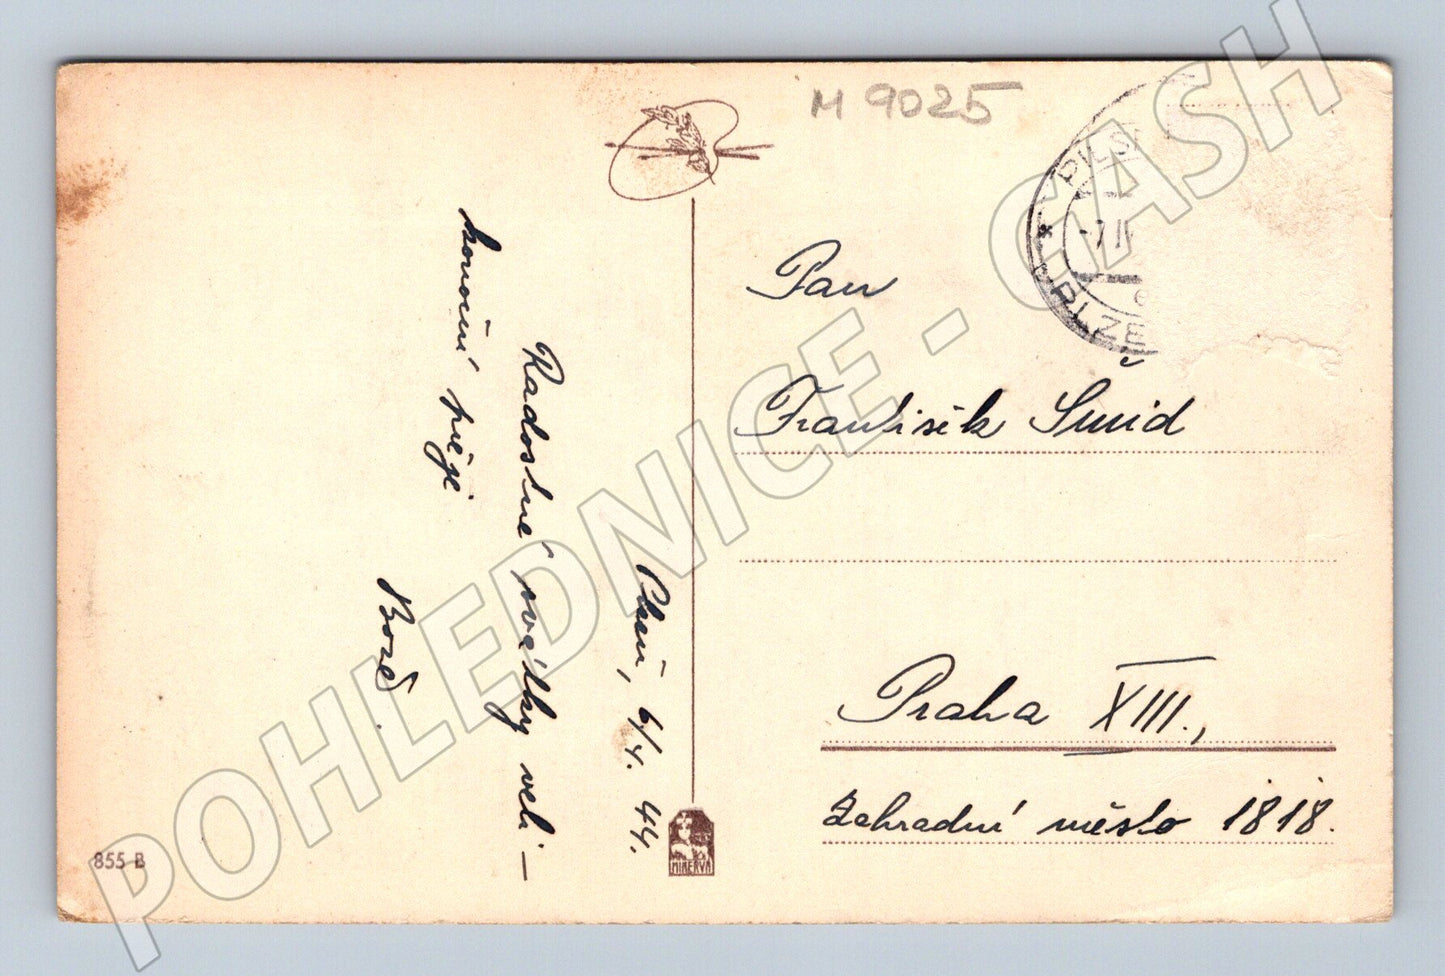 M 9025
PILSE
-7.IV
PLZE
Plzeň, 6/4. 44.
Radostné svátky veli-
konoční přeje
Pan
František Šmíd
Praha XIII.,
Zahradní město 1818.
855 B
MINERVA
POHLEDNICE - CASH